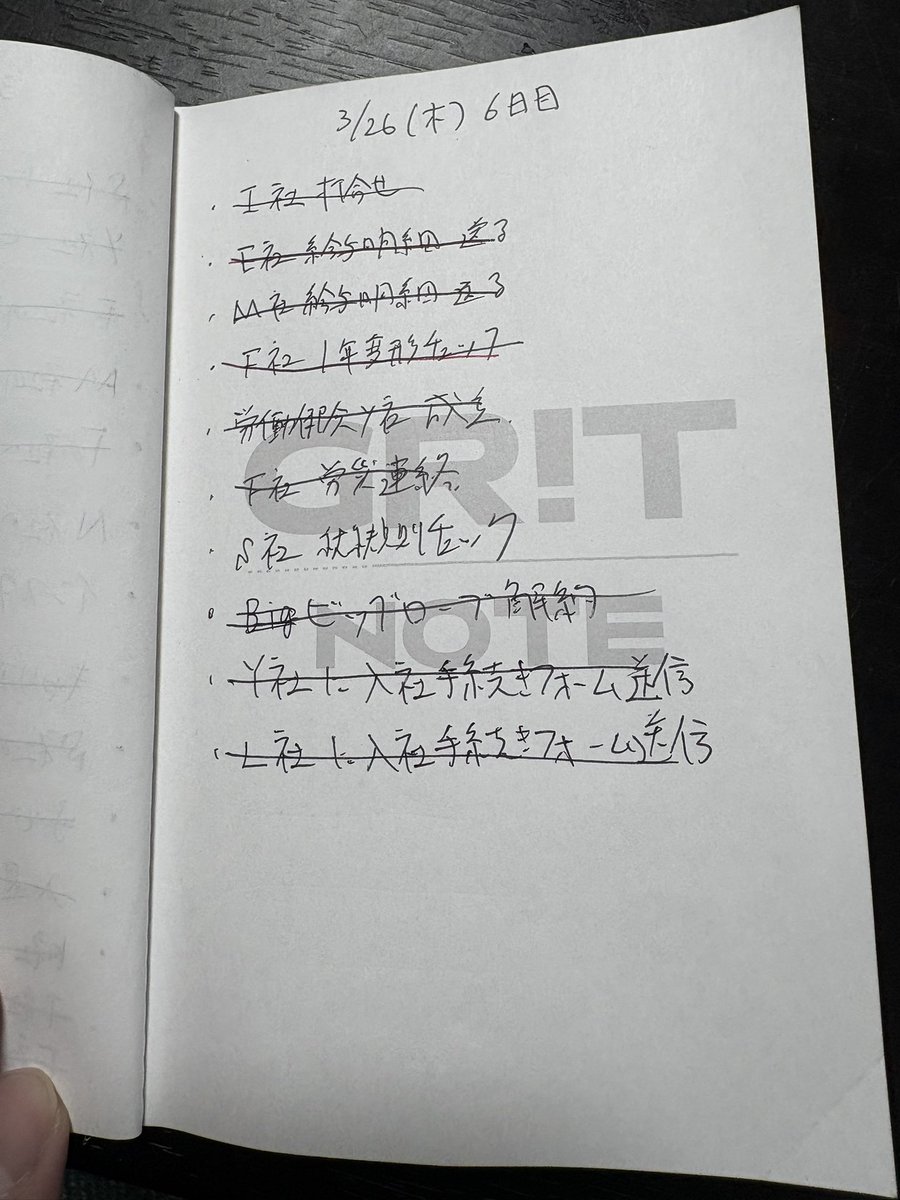 3/26(木) 6日目
・I社 打合せ
・E社 給与明細 送る
・M社 給与明細 送る
・F社 1年変形チェック
・労働保険 Y社 成立
・F社 労災連絡
・S社 就規則チェック
・Big ビッグローブ 解約
・Y社に入社手続きフォーム送信
・L社に入社手続きフォーム送信
GR!T
NOTE